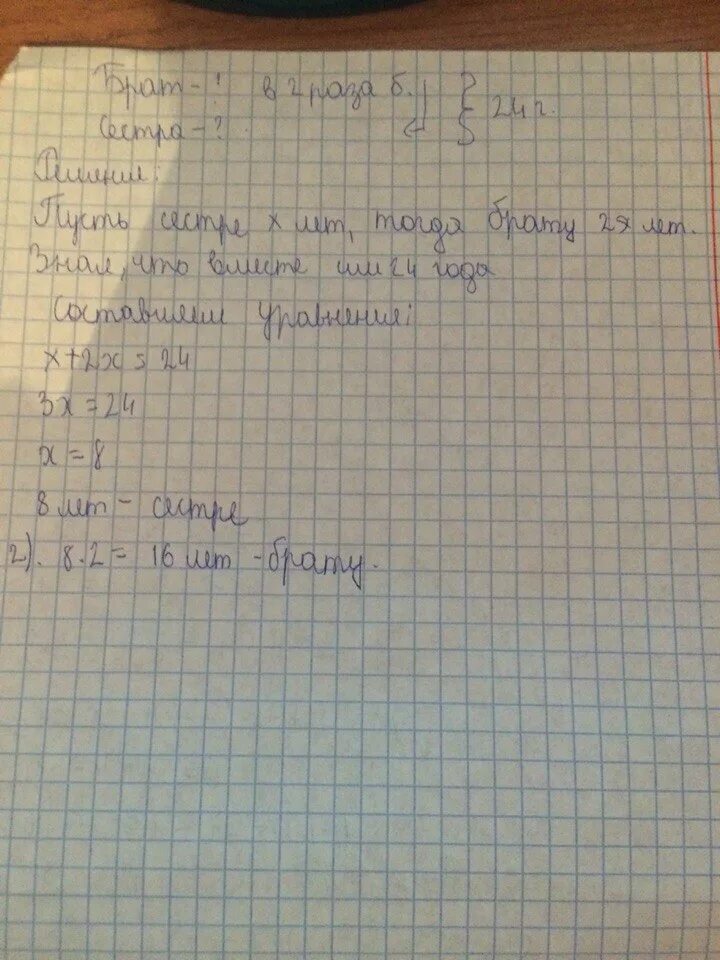 Брат - ? в 2 раза б. } 24 г.
Сестра - ?
Решение:
Пусть сестре x лет, тогда брату 2x лет.
Зная, что вместе им 24 года
Составляем уравнение:
x+2x = 24
3x = 24
x = 8
8 лет - сестре
2). 8·2 = 16 лет - брату.